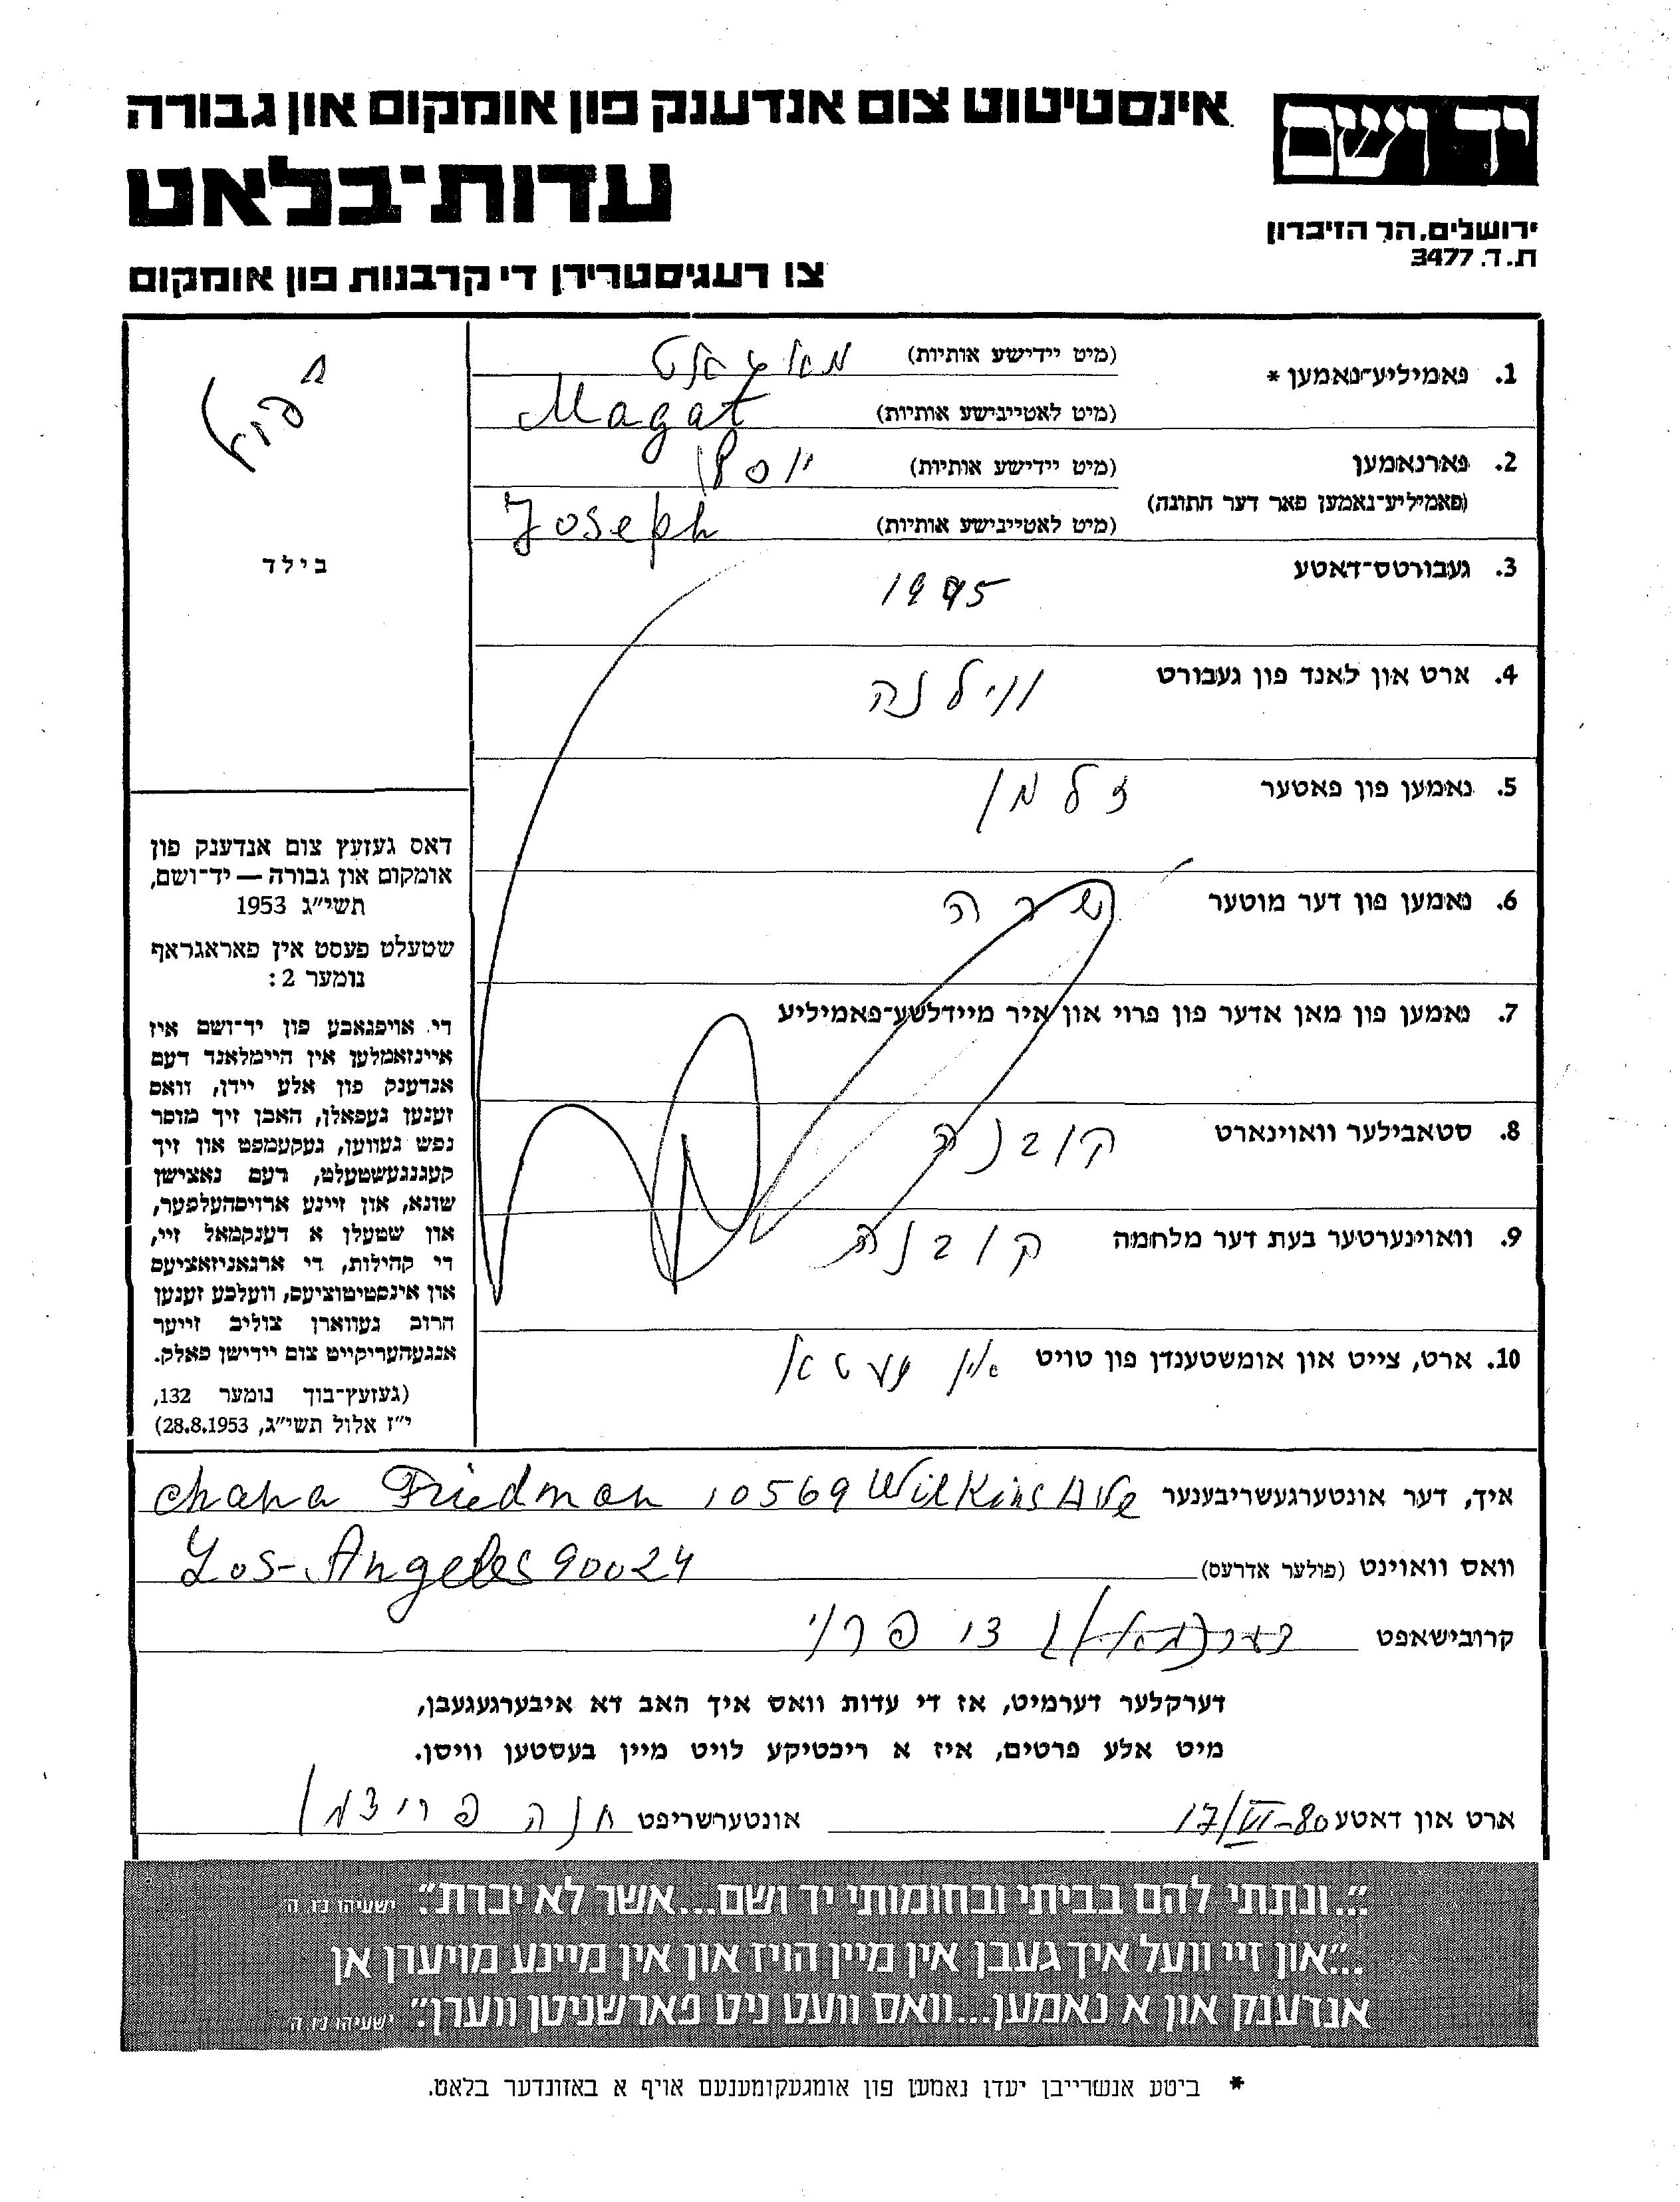 אינסטיטוט צום אנדענק פון אומקום און גבורה
יד ושם
עדות-בלאט
ירושלים, הר הזיכרון
ת.ד. 3477
צו רעגיסטרירן די קרבנות פון אומקום
1. פאמיליע-נאמען * (מיט יידישע אותיות) מאגאט
(מיט לאטיינישע אותיות) Magat
2. פארנאמען (מיט יידישע אותיות) יוסף
(פאמיליע-נאמען פאר דער חתונה)
(מיט לאטיינישע אותיות) Joseph
3. געבורטס-דאטע
4. ארט און לאנד פון געבורט ווילנה
5. נאמען פון פאטער זלמן
6. נאמען פון דער מוטער שרה
7. נאמען פון מאן אדער פון פרוי און איר מיידלשע-פאמיליע
8. סטאבילער וואוינארט קובנה
9. וואוינערטער בעת דער מלחמה קובנה
10. ארט, צייט און אומשטענדן פון טויט אין געטא
כפול
בילד
דאס געזעץ צום אנדענק פון
אומקום און גבורה — יד-ושם,
תשי"ג 1953
שטעלט פעסט אין פאראגראף
נומער 2:
די אויפגאבע פון יד-ושם איז
איינזאמלען אין היימלאנד דעם
אנדענק פון אלע יידן, וואס
זענען געפאלן, האבן זיך מוסר
נפש געווען, געקעמפט און זיך
קעגנגעשטעלט, דעם נאצישן
שונא, און זיינע ארויסהעלפער,
און שטעלן א דענקמאל זיי,
די קהילות, די ארגאניזאציעס
און אינסטיטוציעס, וועלכע זענען
חרוב געווארן צוליב זייער
אנגעהעריקייט צום יידישן פאלק.
(געזעץ-בוך נומער 132,
י"ז אלול תשי"ג, 28.8.1953)
איך, דער אונטערגעשריבענער Chana Friedman 10569 Wilkins Ave
וואס וואוינט (פולער אדרעס) Los-Angeles 90024
קרובישאפט צו פרוי
דערקלער דערמיט, אז די עדות וואס איך האב דא איבערגעגעבן,
מיט אלע פרטים, איז א ריכטיקע לויט מיין בעסטען וויסן.
ארט און דאטע 17/VI-80 אונטערשריפט חנה פרידמן
"...ונתתי להם בביתי ובחומותי יד ושם...אשר לא יכרת." ישעיהו נו, ה
"...און זיי וועל איך געבן אין מיין הויז און אין מיינע מויערן אן
אנדענק און א נאמען...וואס וועט ניט פארשניטן ווערן." ישעיהו נו, ה
* ביטע אנשרייבן יעדן נאמען פון אומגעקומענעם אויף א באזונדער בלאט.